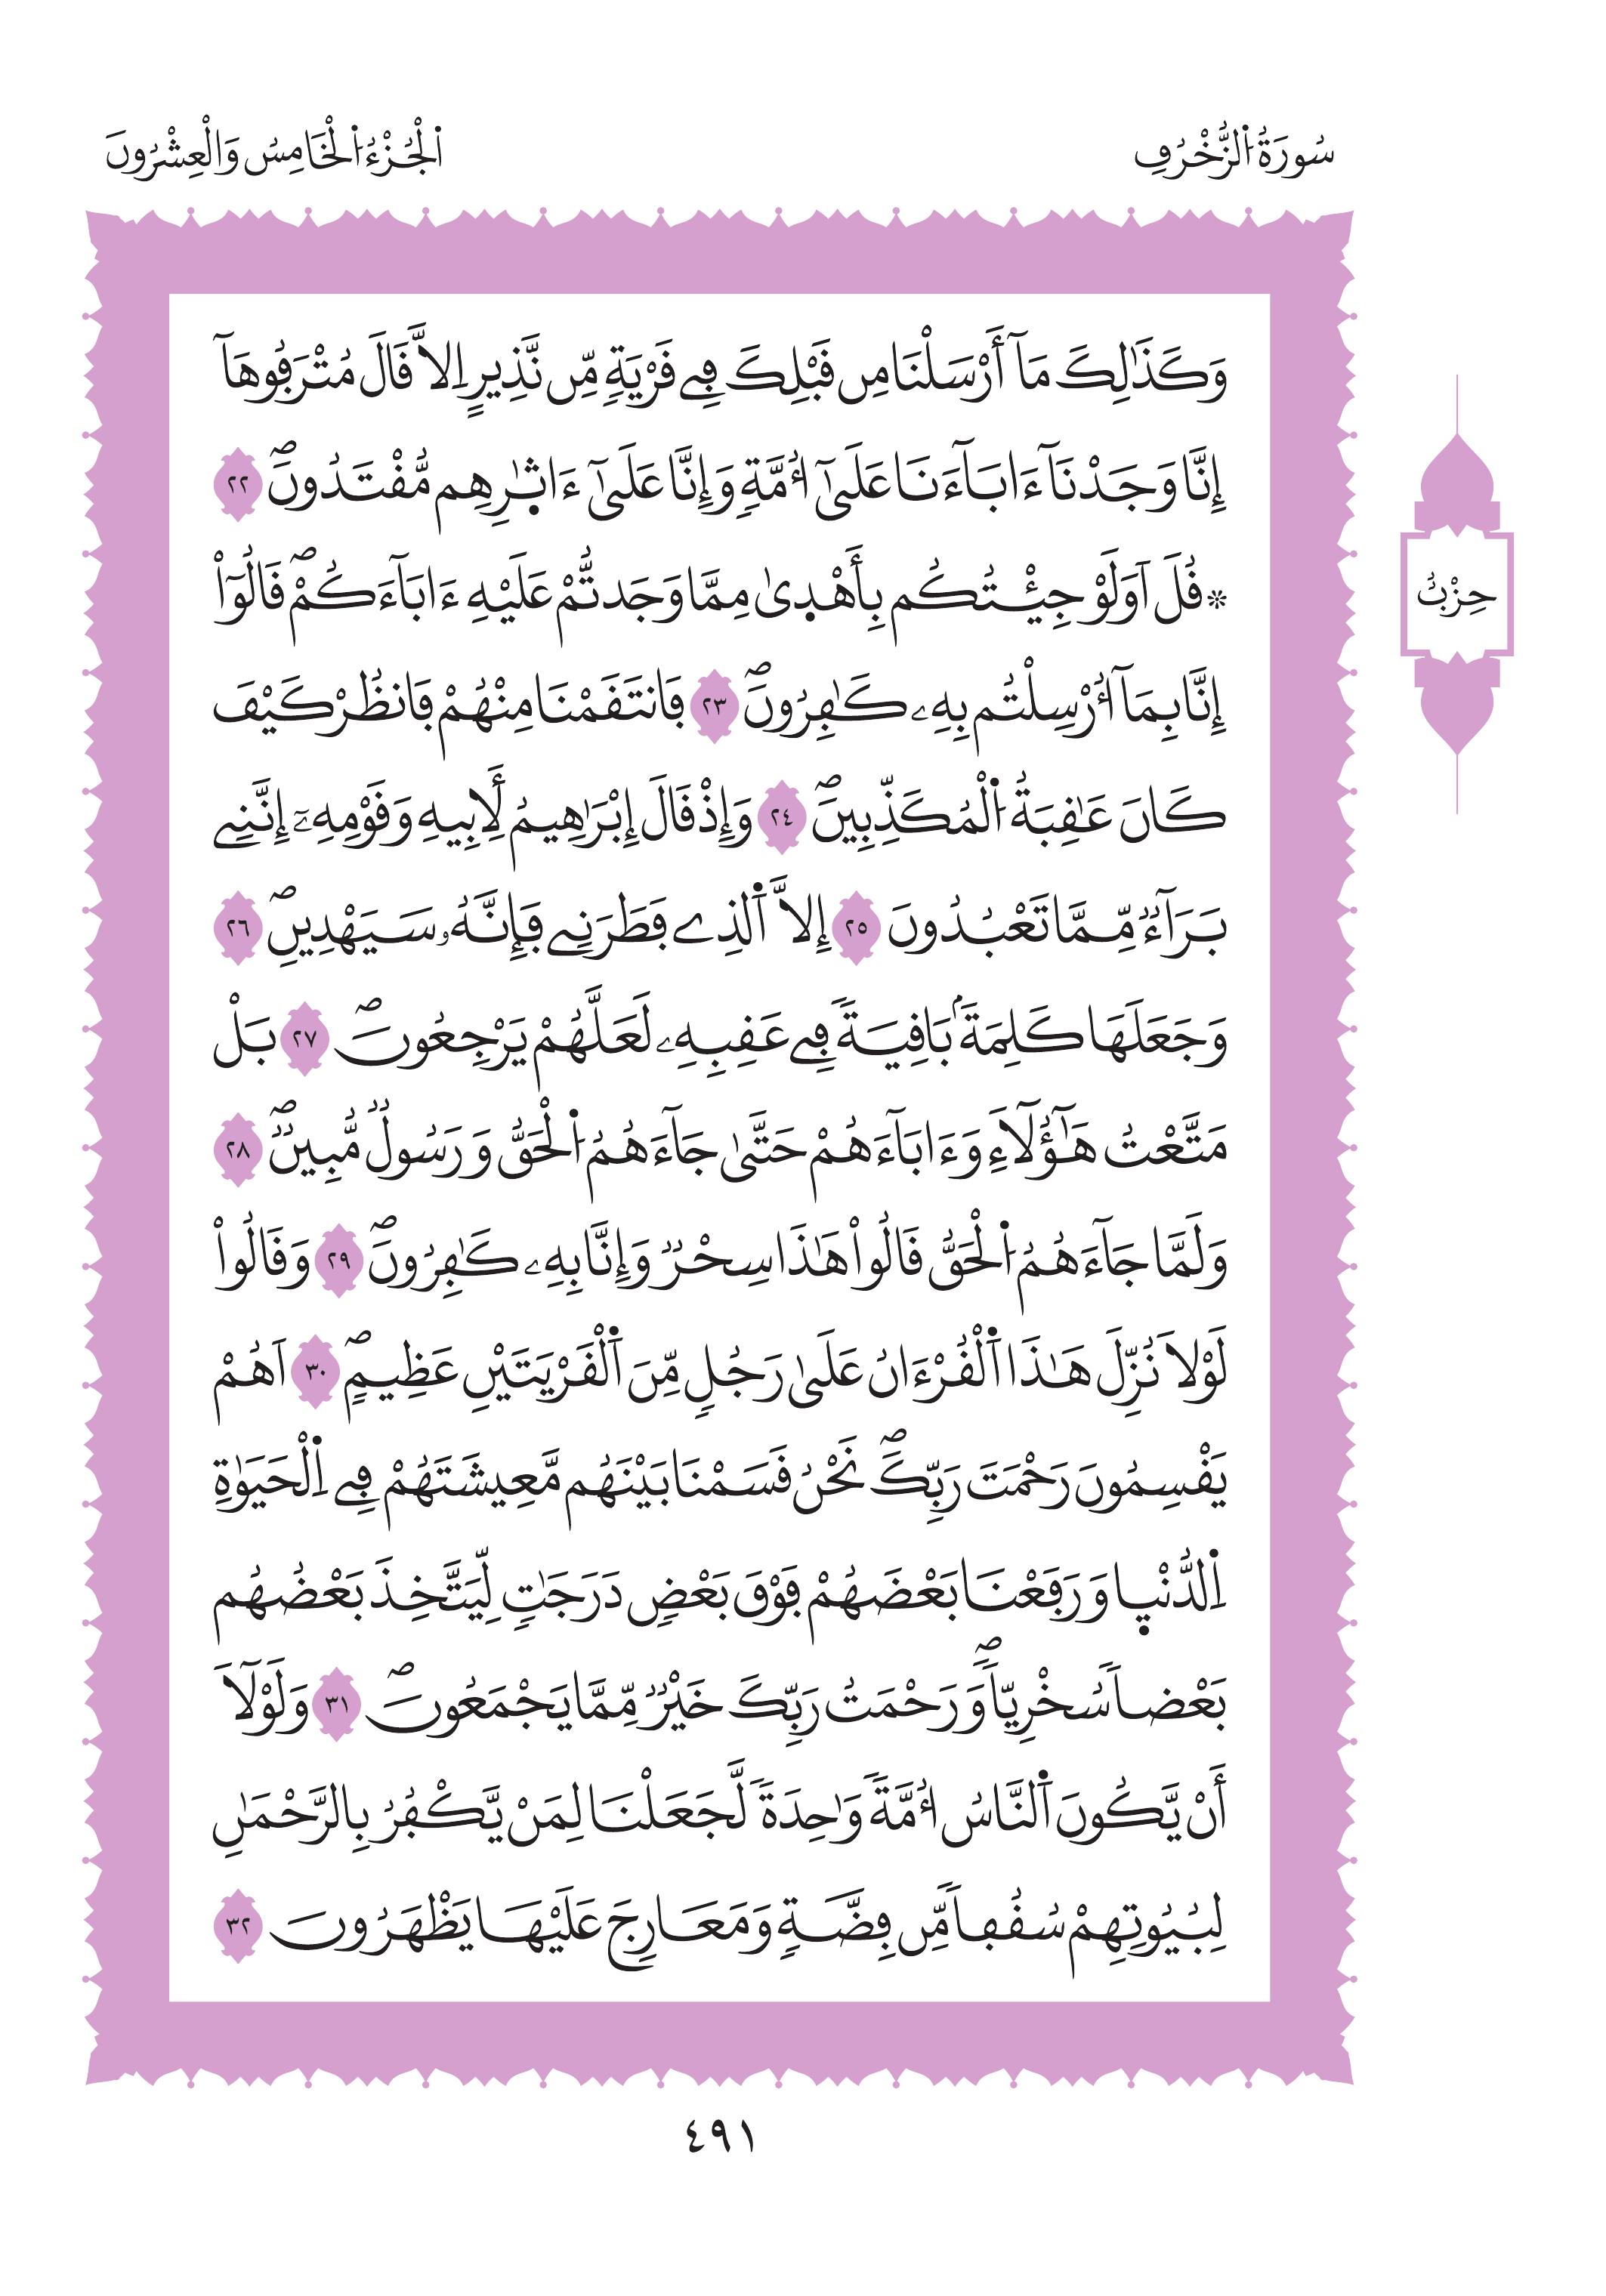 سُورَةُ الزُّخْرُفِ
الْجُزْءُ الْخَامِسُ وَالْعِشْرُونَ
وَكَذَٰلِكَ مَآ أَرْسَلْنَا مِن قَبْلِكَ فِے قَرْيَةٖ مِّن نَّذِيرٍ اِلَّا قَالَ مُتْرَفُوهَآ
إِنَّا وَجَدْنَآ ءَابَآءَنَا عَلَىٰٓ أُمَّةٖ وَإِنَّا عَلَىٰٓ ءَاثٰ۪رِهِم مُّقْتَدُونَۖ ٢٢
۞ قُلَ اَوَلَوْ جِئْتُكُم بِأَهْد۪ىٰ مِمَّا وَجَدتُّمْ عَلَيْهِ ءَابَآءَكُمْۖ قَالُوٓاْ
إِنَّا بِمَآ أُرْسِلْتُم بِهِۦ كَٰفِرُونَۖ ٢٣ فَانتَقَمْنَا مِنْهُمْ فَانظُرْ كَيْفَ
كَانَ عَٰقِبَةُ اُ۬لْمُكَذِّبِينَۖ ٢٤ وَإِذْ قَالَ إِبْرَٰهِيمُ لِأَبِيهِ وَقَوْمِهِۦٓ إِنَّنِے
بَرَآءٞ مِّمَّا تَعْبُدُونَ ٢٥ إِلَّا اَ۬لذِے فَطَرَنِے فَإِنَّهُۥ سَيَهْدِينِۖ ٢٦
وَجَعَلَهَا كَلِمَةَۢ بَاقِيَةٗ فِے عَقِبِهِۦ لَعَلَّهُمْ يَرْجِعُونَۖ ٢٧ بَلْ
مَتَّعْتُ هَٰٓؤُلَآءِ وَءَابَآءَهُمْ حَتَّىٰ جَآءَهُمُ اُ۬لْحَقُّ وَرَسُولٞ مُّبِينٞۖ ٢٨
وَلَمَّا جَآءَهُمُ اُ۬لْحَقُّ قَالُواْ هَٰذَا سِحْرٞ وَإِنَّا بِهِۦ كَٰفِرُونَۖ ٢٩ وَقَالُواْ
لَوْلَا نُزِّلَ هَٰذَا اَ۬لْقُرْءَانُ عَلَىٰ رَجُلٖ مِّنَ اَ۬لْقَرْيَتَيْنِ عَظِيمٍۖ ٣٠ اَهُمْ
يَقْسِمُونَ رَحْمَتَ رَبِّكَۖ نَحْنُ قَسَمْنَا بَيْنَهُم مَّعِيشَتَهُمْ فِے اِ۬لْحَيَوٰةِ
اِ۬لدُّنْي۪ا وَرَفَعْنَا بَعْضَهُمْ فَوْقَ بَعْضٖ دَرَجَٰتٖ لِّيَتَّخِذَ بَعْضُهُم
بَعْضاٗ سُخْرِيّاٗۖ وَرَحْمَتُ رَبِّكَ خَيْرٞ مِّمَّا يَجْمَعُونَۖ ٣١ وَلَوْلَآ
أَنْ يَّكُونَ اَ۬لنَّاسُ أُمَّةٗ وَٰحِدَةٗ لَّجَعَلْنَا لِمَنْ يَّكْفُرُ بِالرَّحْمَٰنِ
لِبُيُوتِهِمْ سُقُفاٗ مِّن فِضَّةٖ وَمَعَارِجَ عَلَيْهَا يَظْهَرُونَ ٣٢
حِزْبُ
٤٩١